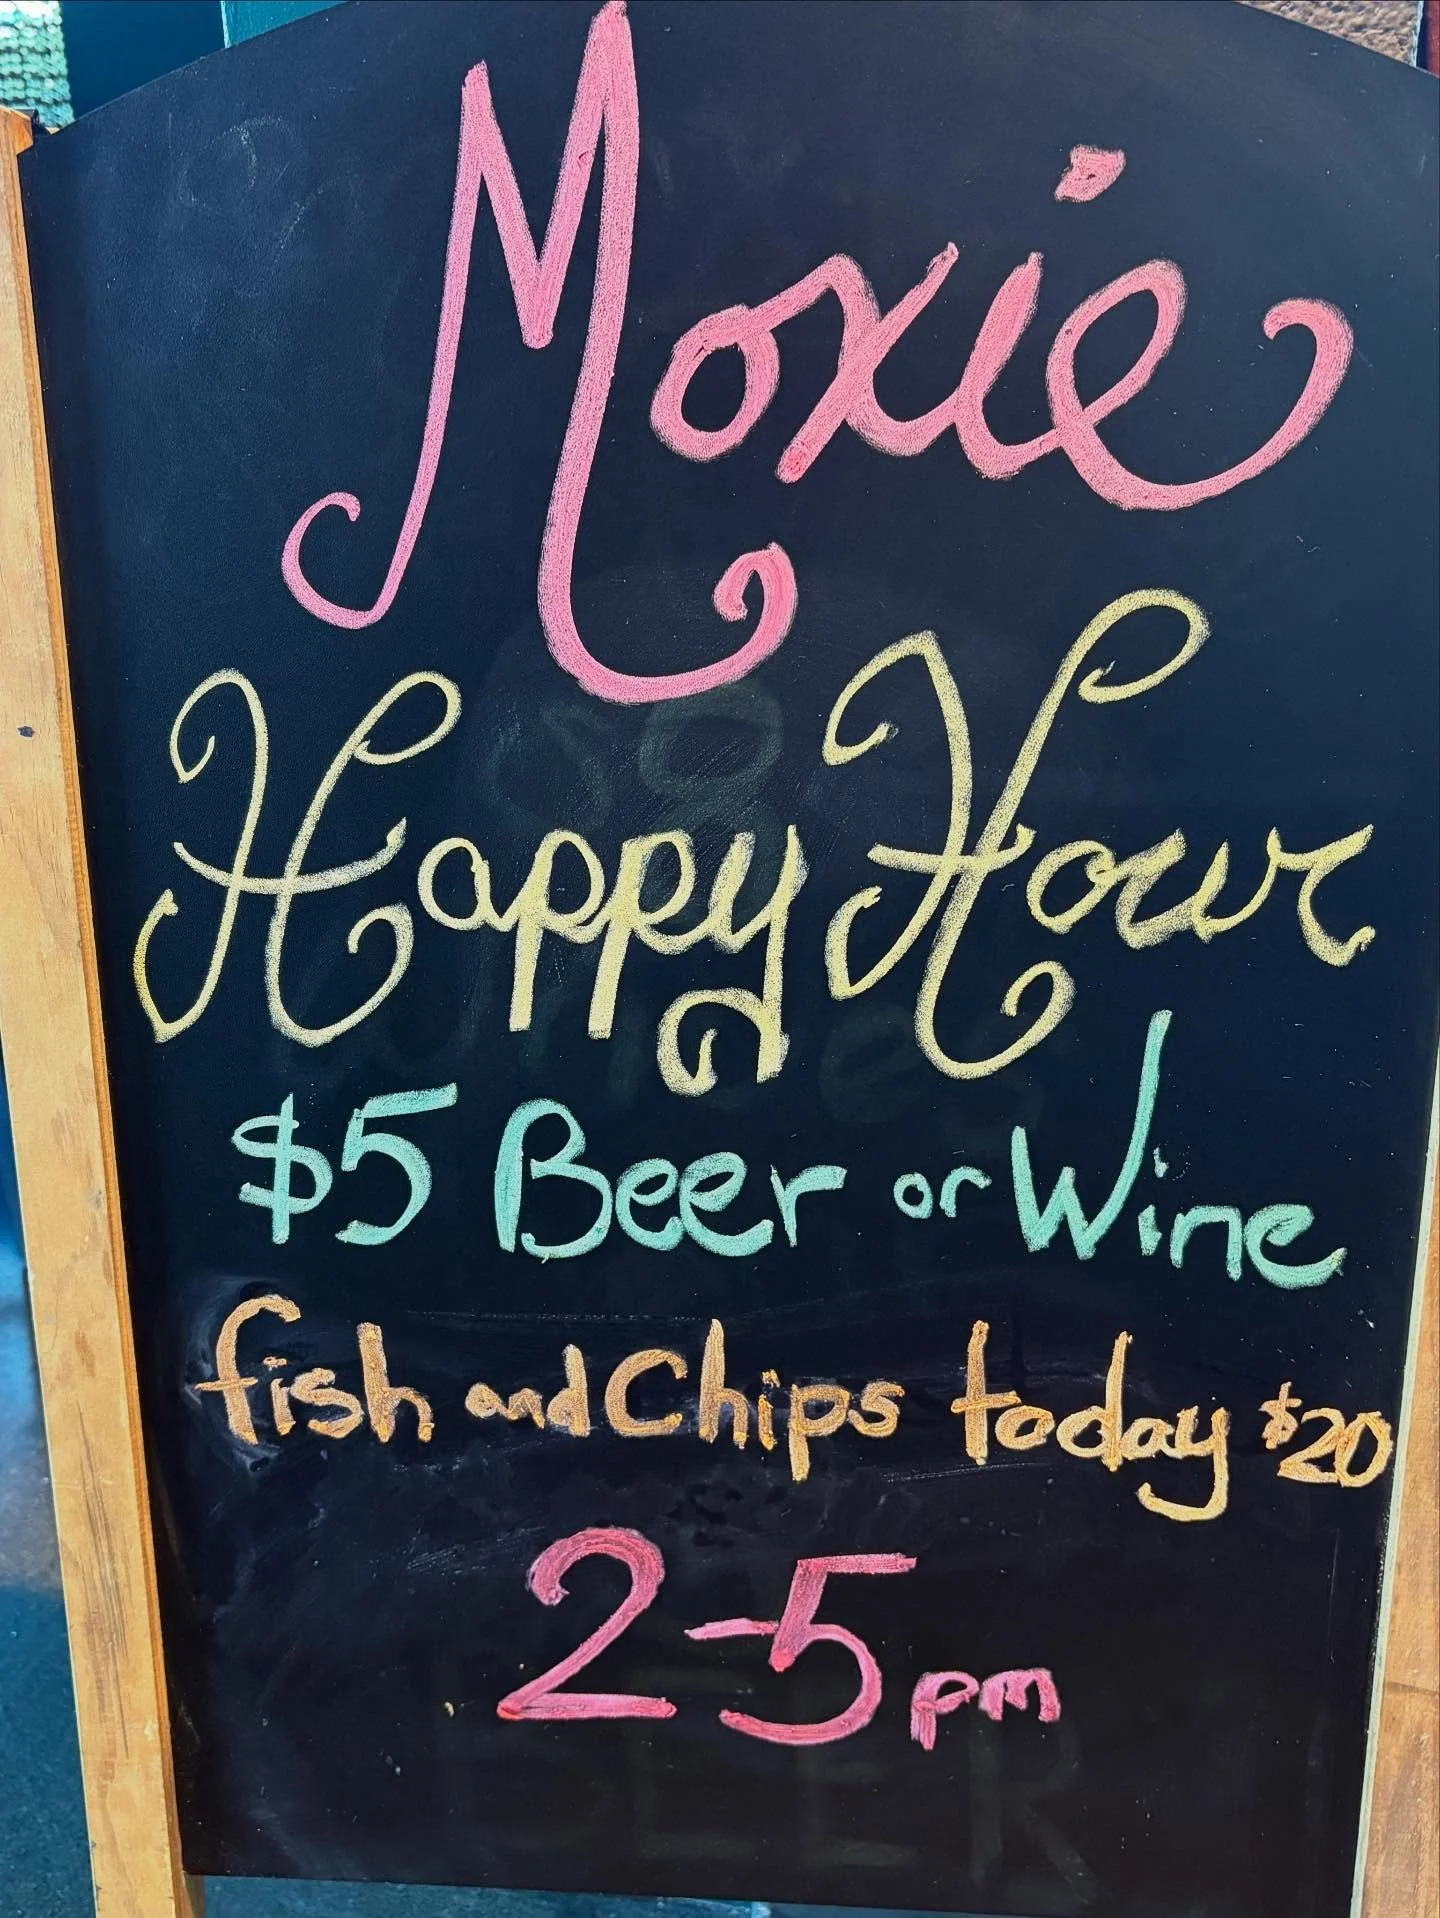 Moxie
Happy Hour
$5 Beer or Wine
fish and Chips today $20
2-5pm